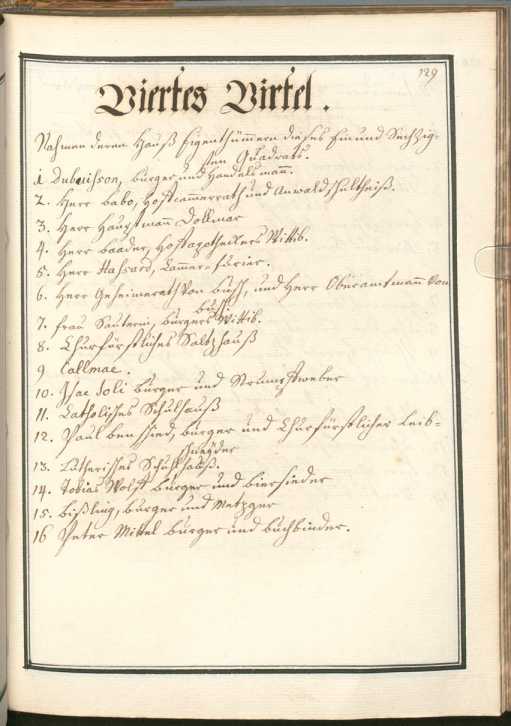 129
Viertes Virtel.
Nahmen deren Hauß Eigenthümmern dieses Ein und Sechzig-
sten Quadrats.
1 Dubuisson, burger und Handelsmann.
2. Herr babo, Hoffcammerrath und Anwaldschultheiß.
3. Herr Hauptmann Dollmar
4. Herr baader, Hoffapotheckers Wittib.
5. Herr Hassard, Cammer-furier.
6. Herr Geheimerath Von buhl, und Herr Oberamtmann Von
buhl.
7. frau Sauterin, burgers Wittib.
8. Churfürstliches Saltzhauß
9 Callmae.
10. Isac Joli burger und Strumpfweber
11. Catholisches Schulhauß
12. Paul burger und Churfürstlicher Leib-
schneyder
13. Lutherisches Schulhauß.
14. Tobias Wolff burger und biersieder
15. bißling, burger und Metzger
16 Peter Mittel burger und buchbinder.